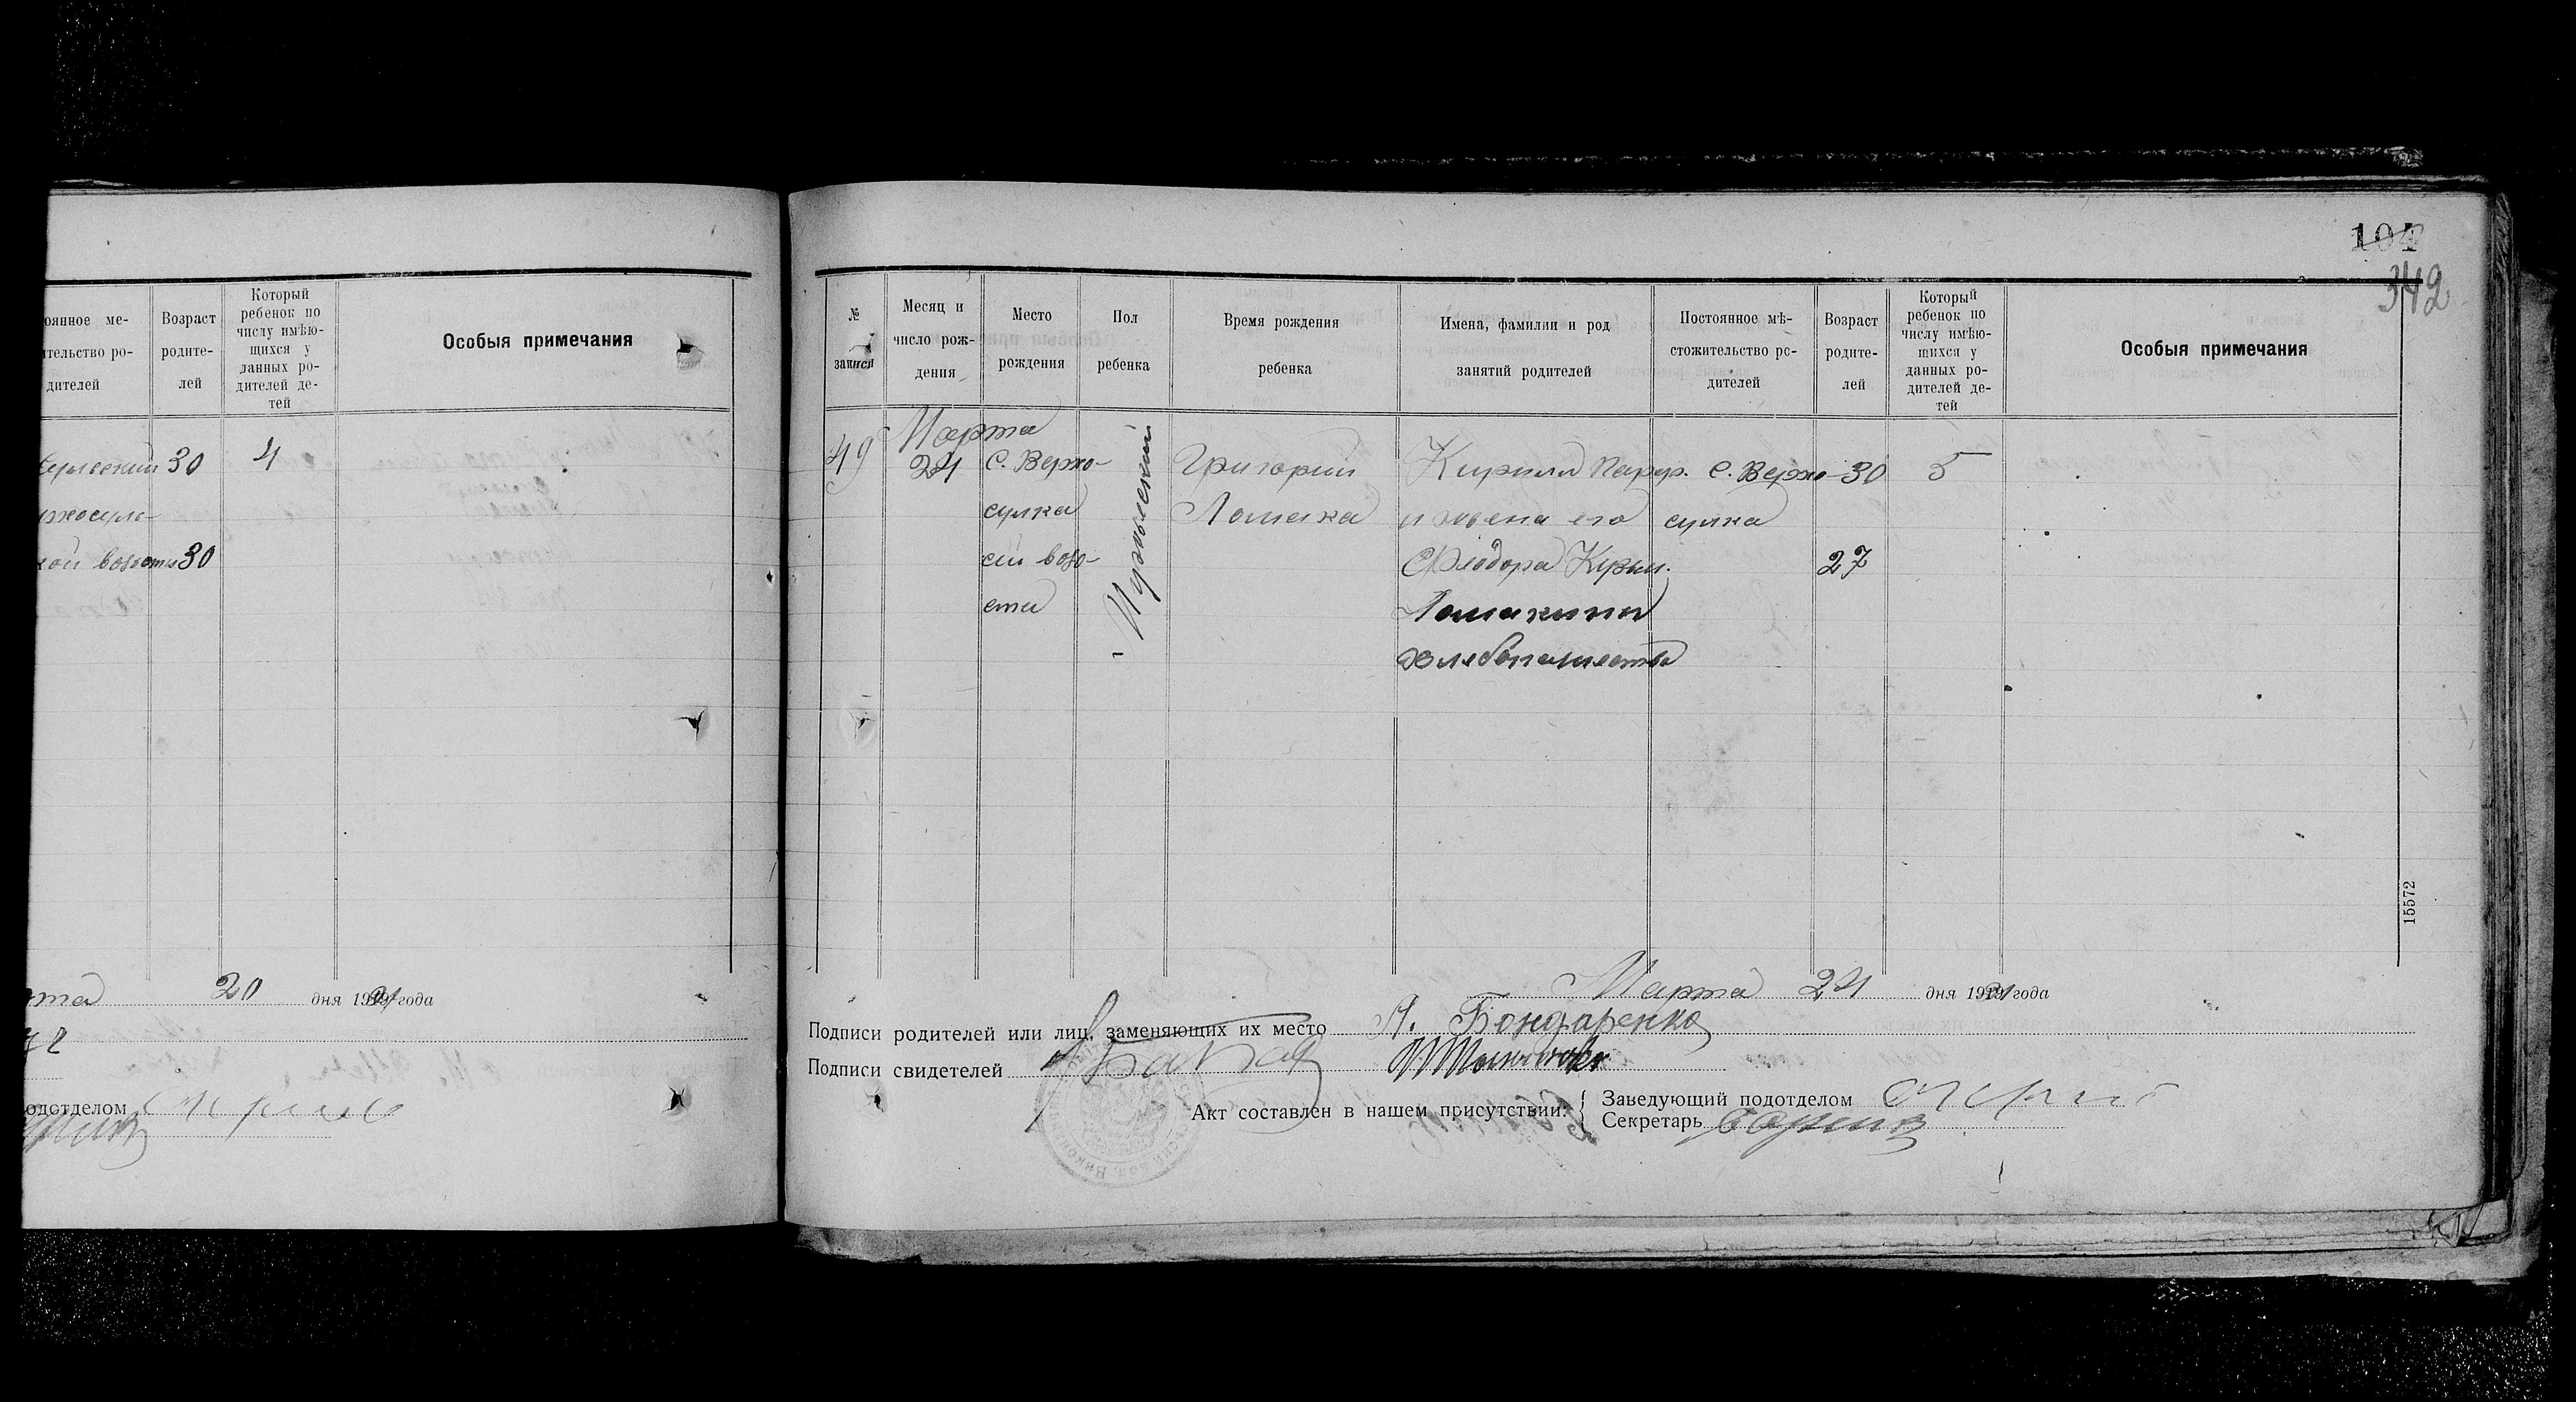 104
342
оянное ме-
ительство ро-
дителей
Возраст
родите-
лей
Который
ребенок по
числу имѣю-
щихся у
данных ро-
дителей де-
тей
Особыя примечания
30
4
хосуль-
кой волости 30
20 дня 1921 года
одотделом
№
записи
Месяц и
число рож-
дения
Место
рождения
Пол
ребенка
Время рождения
ребенка
Имена, фамилии и род
занятий родителей
Постоянное мѣ-
стожительство ро-
дителей
Возраст
родите-
лей
Который
ребенок по
числу имѣю-
щихся у
данных ро-
дителей де-
тей
Особыя примечания
49
Марта
24
с. Верхо-
сулка
сти
Мужеский
Григорий
Ломака
Кирилл Парф.
и жена его
Феодора Кузьм.
Ломакины
хлебопашество
с. Верхо-
сулка
30
27
5
15572
Марта 24 дня 1921 года
Подписи родителей или лиц, заменяющих их место А. Бондаренко
Подписи свидетелей
Акт составлен в нашем присутствии:
Заведующий подотделом
Секретарь